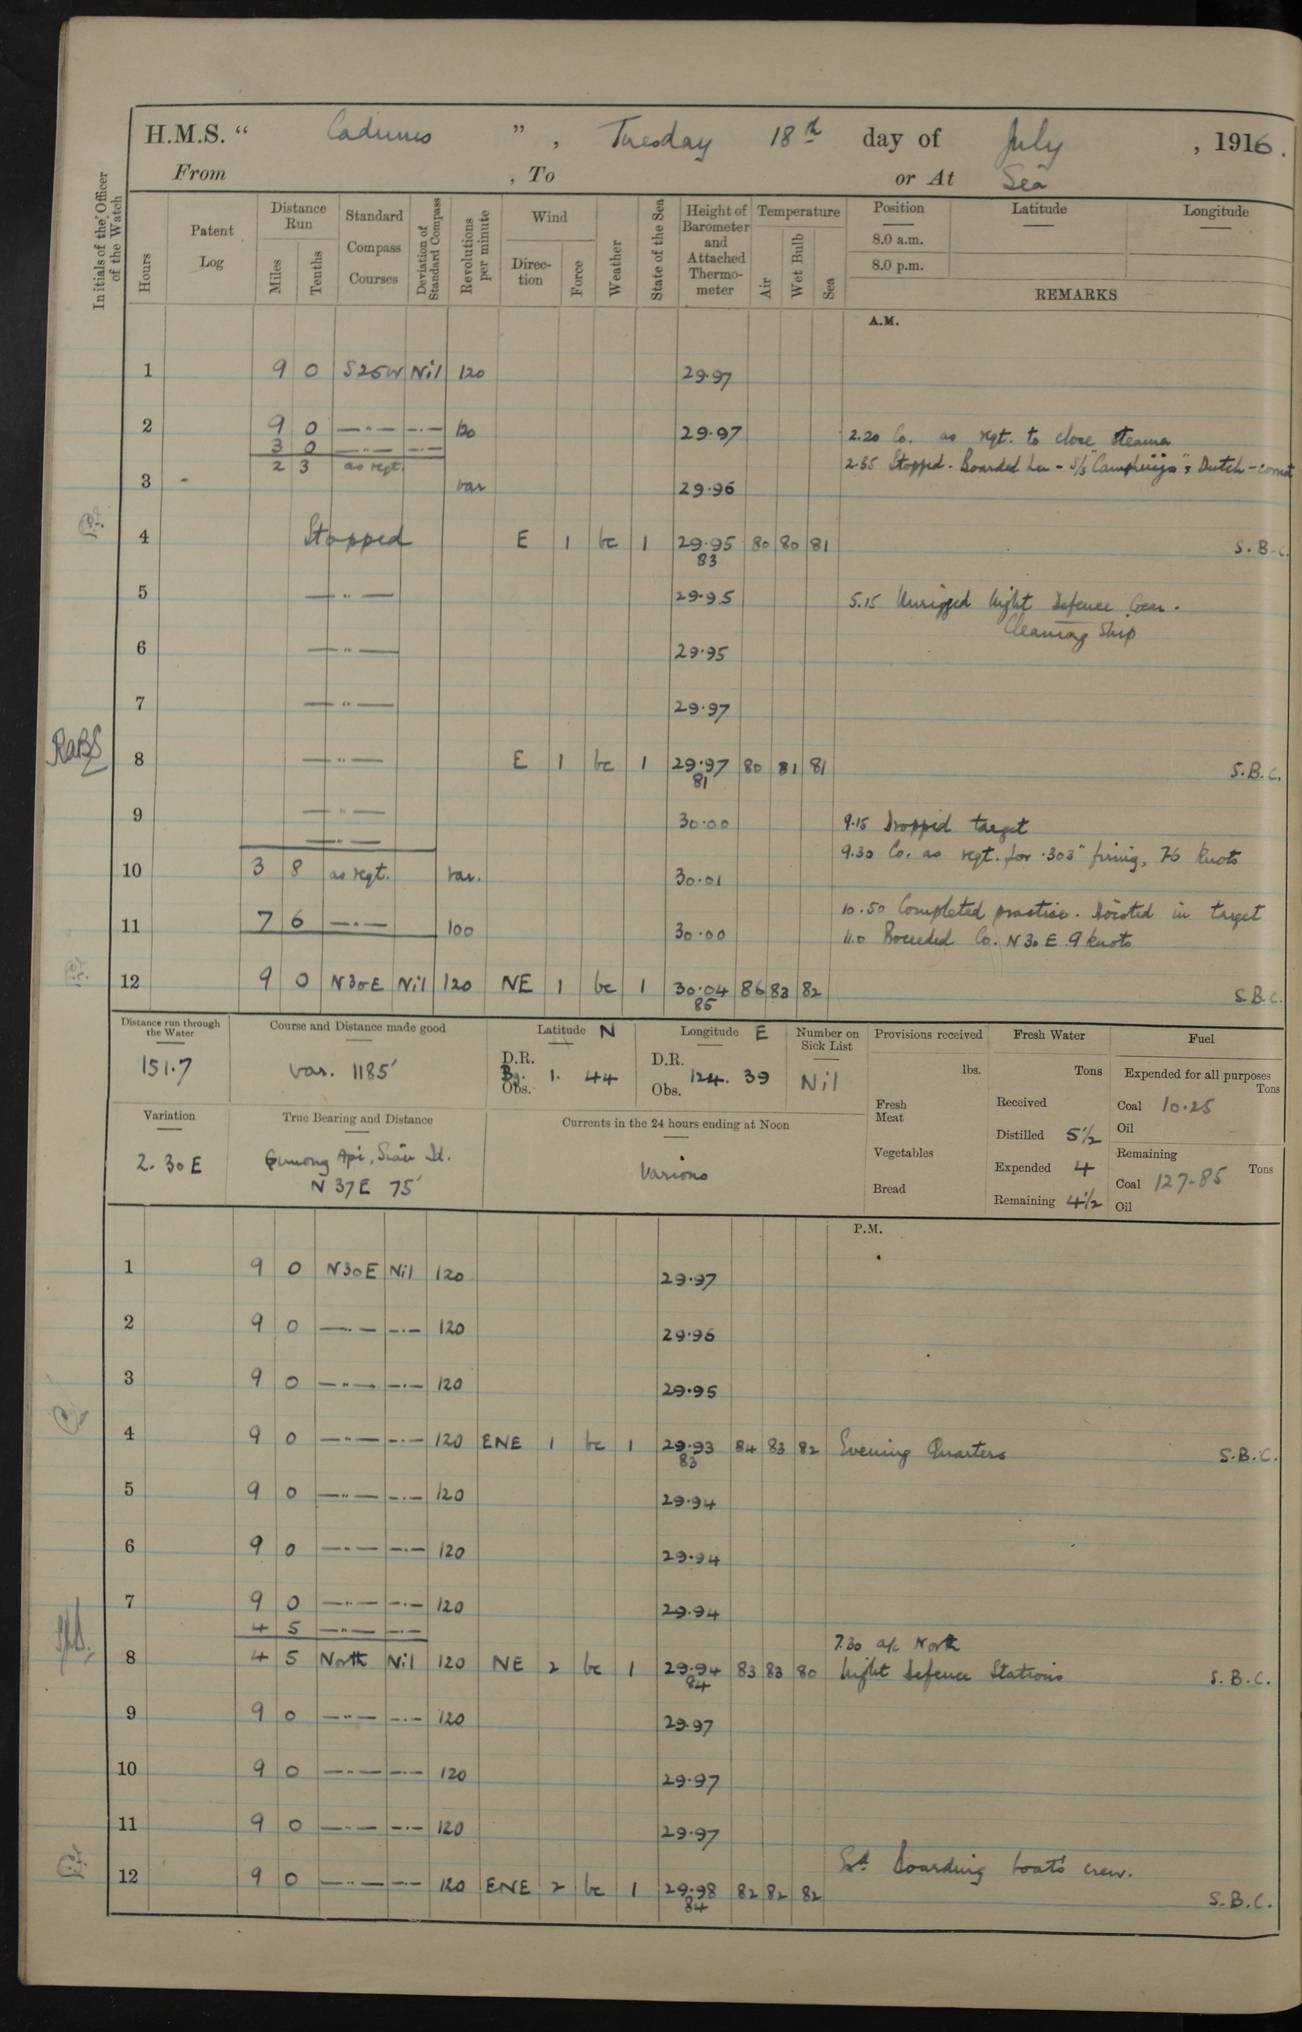 H.M.S. “ Cadmus ”, Tuesday 18th day of July, 1916.
From , To or At Sea
Initials of the Officer of the Watch
Hours
Patent Log
Distance Run
Miles
Tenths
Standard Compass Courses
Deviation of Standard Compass
Revolutions per minute
Wind
Direction
Force
Weather
State of the Sea
Height of Barometer and Attached Thermometer
Temperature
Air
Wet Bulb
Sea
Position
8.0 a.m.
8.0 p.m.
Latitude
Longitude
REMARKS
A.M.
1 9 0 S25W Nil 120 29.97
2 9 0 —"— —"— 120 29.97 2.20 Co. as reqt. to close steamer
3 0 —"— —"—
2 3 as reqt. 2.55 Stopped. Boarded her - S/S "Camphuijs", Dutch - correct
3 var 29.96
4 Stopped E 1 bc 1 29.95 80 80 81 S.B.C.
83
5 —"— 29.95 5.15 Unrigged Night Defence Gear.
Cleaning Ship
6 —"— 29.95
7 —"— 29.97
8 —"— E 1 bc 1 29.97 80 81 81 S.B.C.
81
9 —"— 30.00 9.15 Dropped target
—"— 9.30 Co. as reqt. for .303" firing, 7.6 knots
10 3 8 as reqt. var. 30.01
10.50 Completed practice. Hoisted in target
11 7 6 —"— 100 30.00 11.0 Proceeded Co. N30E 9 knots
12 9 0 N30E Nil 120 NE 1 bc 1 30.04 86 83 82 S.B.C.
85
Distance run through the Water
151.7
Course and Distance made good
var. 118.5'
Latitude N
D.R.
Bg. 1. 44
Obs.
Longitude E
D.R.
124. 39
Obs.
Number on Sick List
Nil
Provisions received
lbs.
Fresh Meat
Vegetables
Bread
Fresh Water
Tons
Received
Distilled 5½
Expended 4
Remaining 4½
Fuel
Expended for all purposes
Tons
Coal 10.25
Oil
Remaining
Tons
Coal 127.85
Oil
Variation
2.30E
True Bearing and Distance
Gunong Api, Siau Id.
N 37 E 75'
Currents in the 24 hours ending at Noon
Various
P.M.
1 9 0 N30E Nil 120 29.97
2 9 0 —"— —"— 120 29.96
3 9 0 —"— —"— 120 29.95
4 9 0 —"— —"— 120 ENE 1 bc 1 29.93 84 83 82 Evening Quarters S.B.C.
83
5 9 0 —"— —"— 120 29.94
6 9 0 —"— —"— 120 29.94
7 9 0 —"— —"— 120 29.94
4 5 —"— —"— 7.30 a/c North
8 4 5 North Nil 120 NE 2 bc 1 29.94 83 83 80 Night Defence Stations S.B.C.
84
9 9 0 —"— —"— 120 29.97
10 9 0 —"— —"— 120 29.97
11 9 0 —"— —"— 120 29.97
Boarding boat's crew.
12 9 0 —"— —"— 120 ENE 2 bc 1 29.98 82 82 82 S.B.C.
84